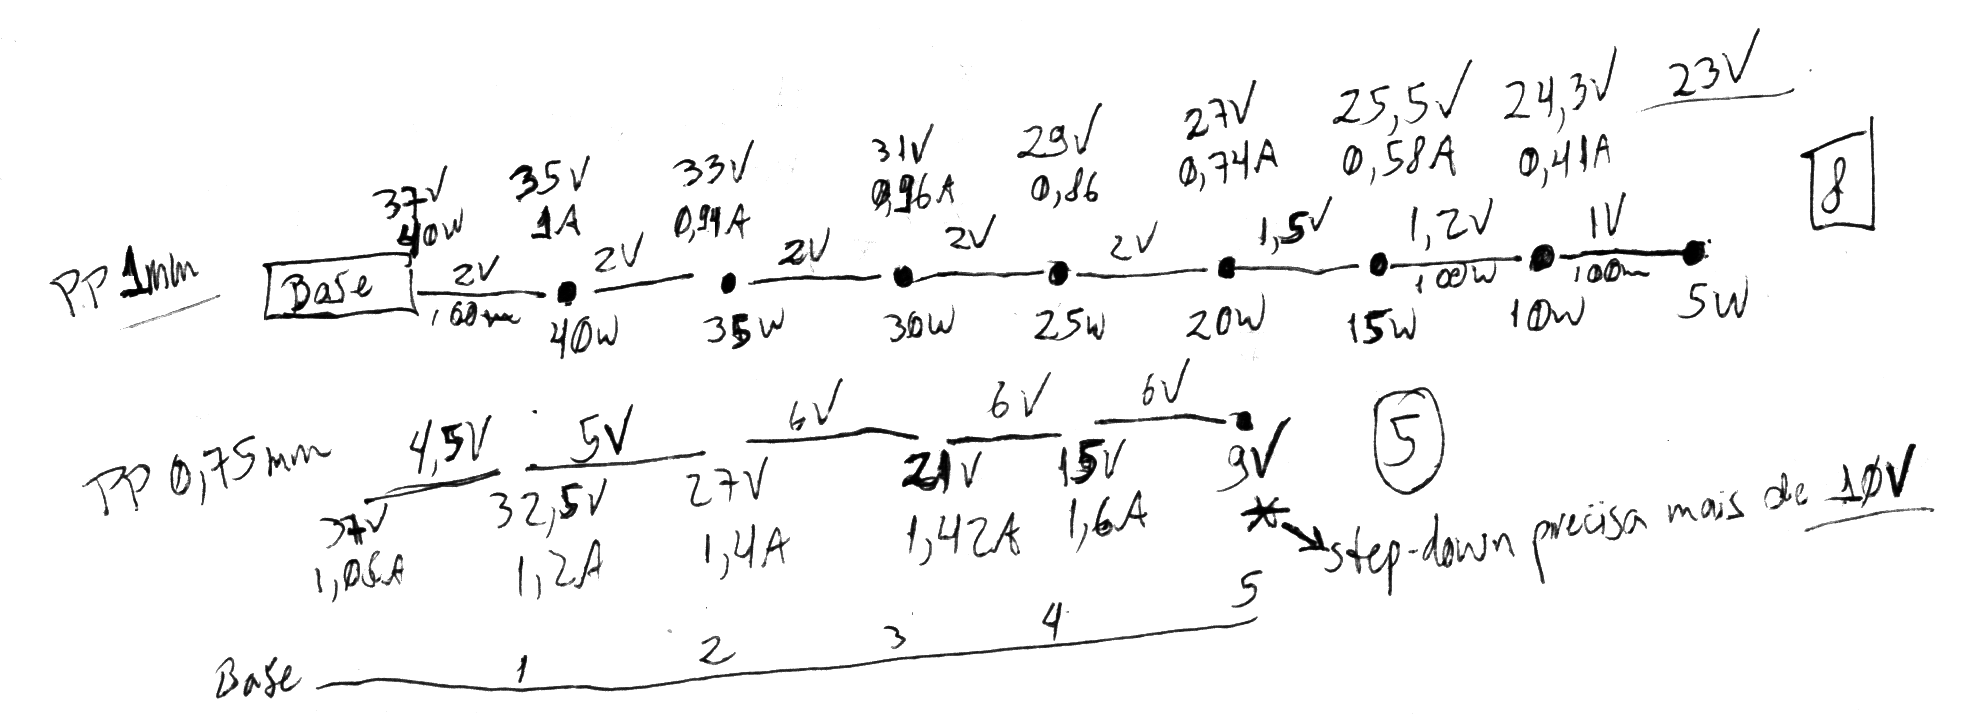 23V
25,5V 24,3V
27V
31V 29V 0,74A 0,58A 0,41A
37V 35V 33V 0,96A 0,86
40W 1A 0,94A
8
PP 1mm Base 2V 2V 2V 2V 2V 1,5V 1,2V 1V
100m 100m 100m
40W 35W 30W 25W 20W 15W 10W 5W
PP 0,75mm 4,5V 5V 6V 6V 6V 5
37V 32,5V 27V 21V 15V 9V
1,06A 1,2A 1,4A 1,42A 1,6A
* step-down precisa mais de 10V
Base 1 2 3 4 5